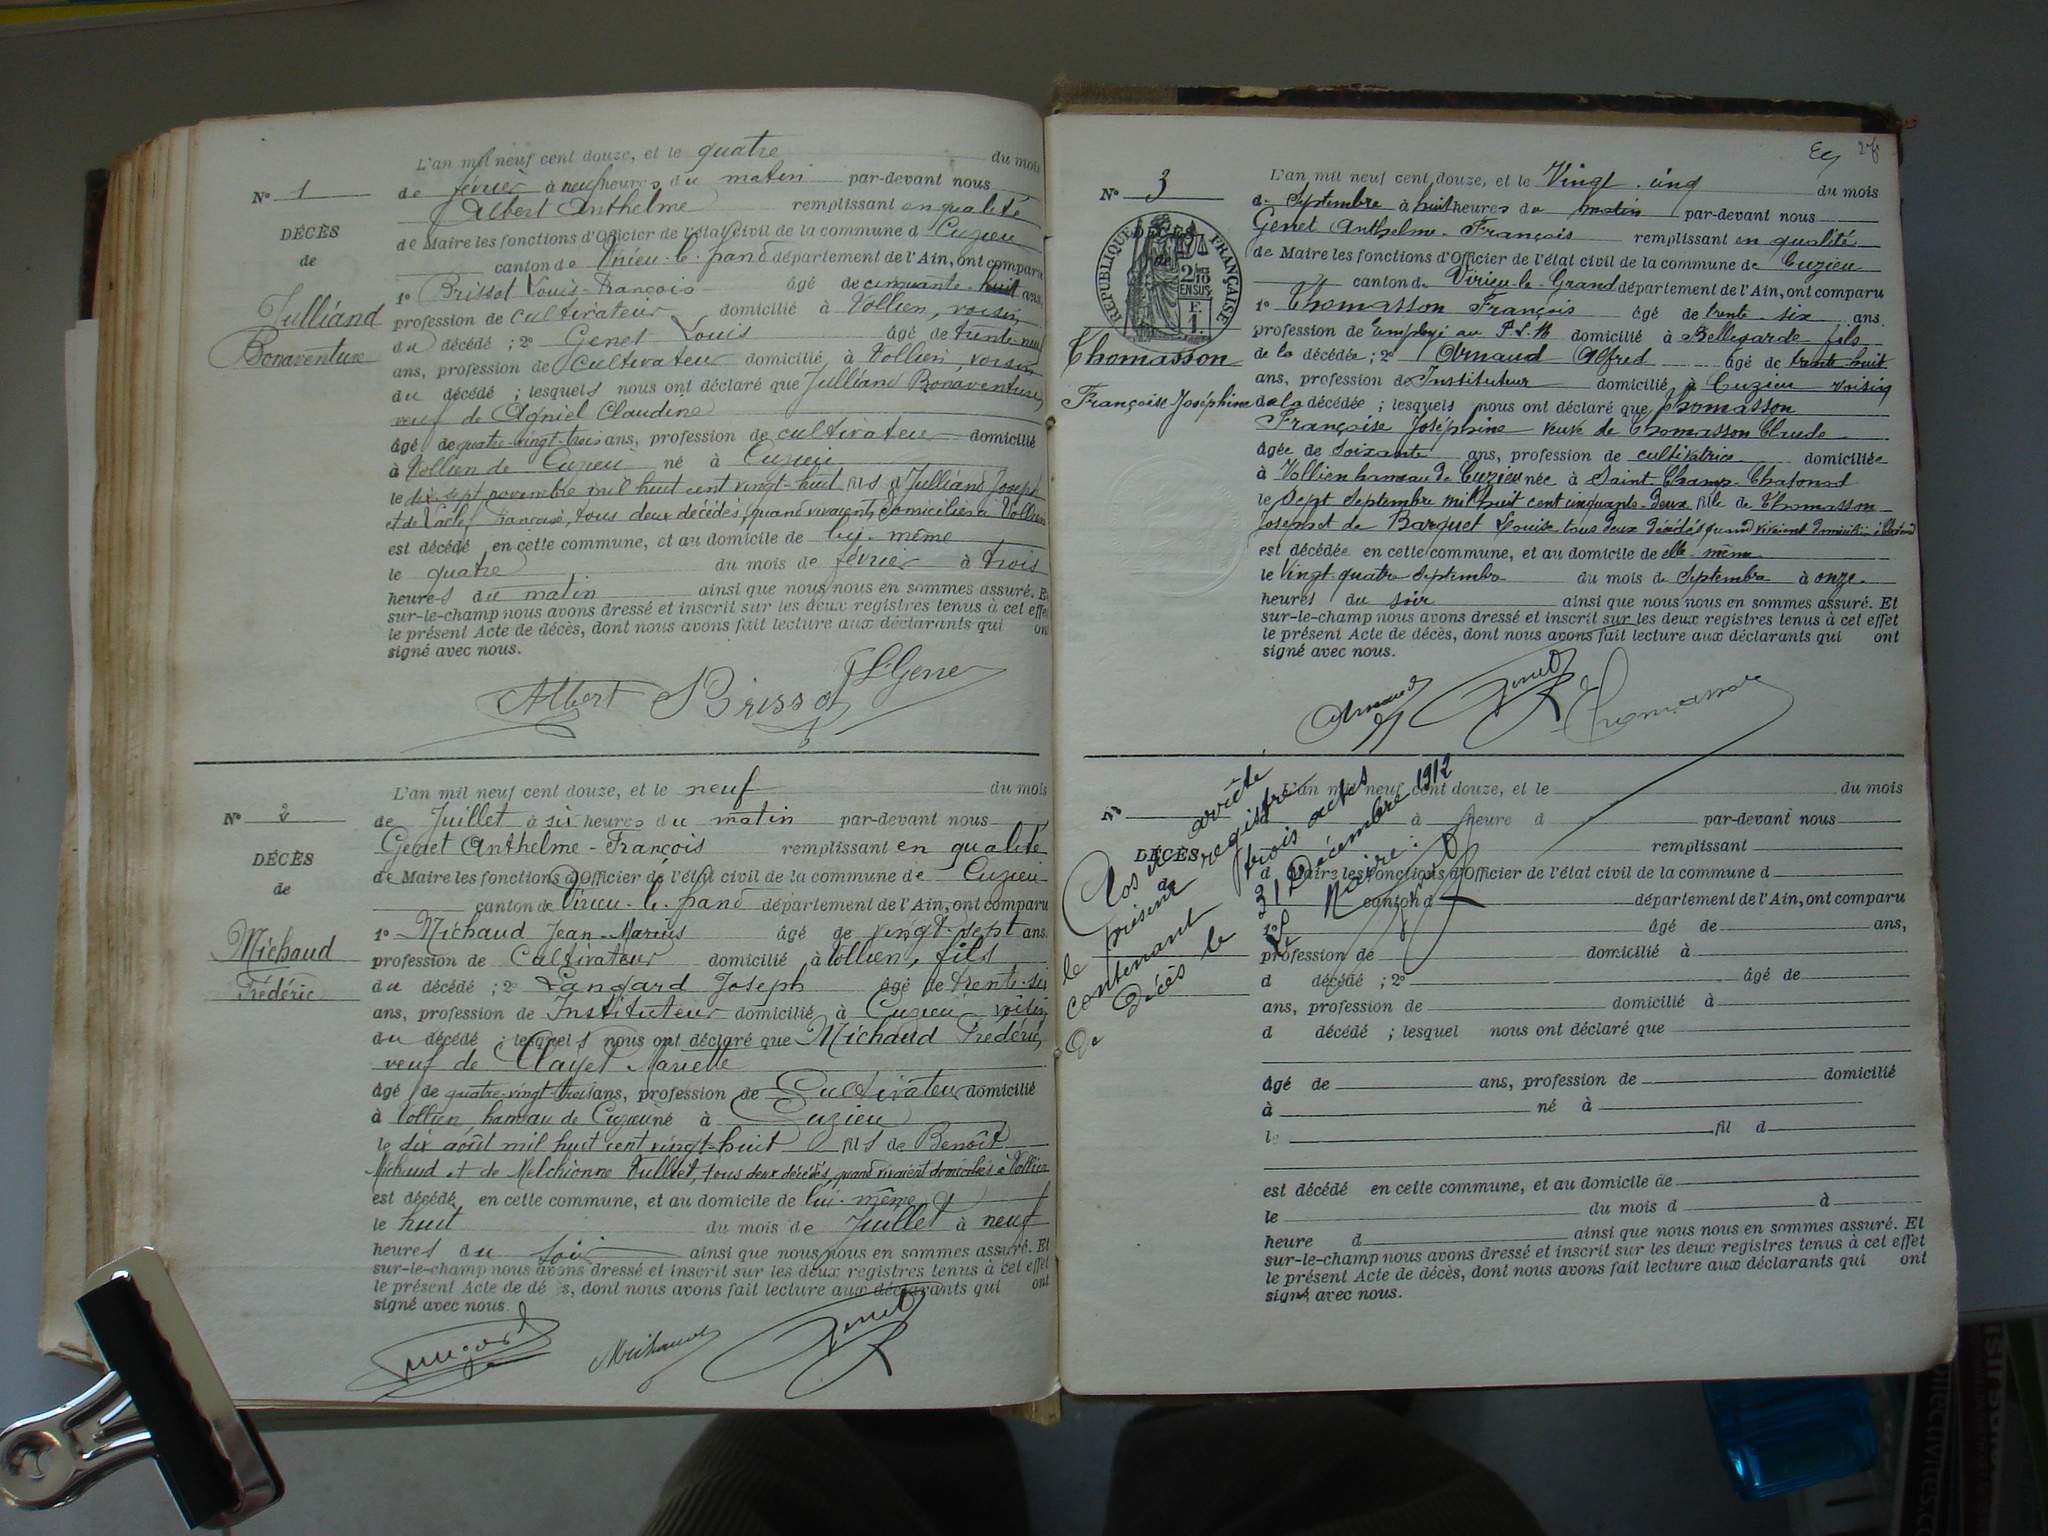 L'an mil neuf cent douze, et le quatre du mois
N° 1
de février à neuf heures du matin par-devant nous
Albert Anthelme remplissant en qualité
DÉCÈS
de Maire les fonctions d'Officier de l'état civil de la commune d Cuzieu
de
canton de Virieu-le-Grand département de l'Ain, ont comparu
1° Brissot Louis-François âgé de cinquante-huit ans
Julliand
profession de cultivateur domicilié à Vollien, voisin
Bonaventure
du décédé ; 2° Genet Louis âgé de trente-neuf
ans, profession de cultivateur domicilié à Vollien, voisin
du décédé ; lesquels nous ont déclaré que Julliand Bonaventure,
veuf de Agniel Claudine
âgé de quatre-vingt-trois ans, profession de cultivateur domicilié
à Vollien de Cuzieu né à Cuzieu
le dix-sept novembre mil huit cent vingt-huit fils d Julliand Joseph
et de Françoise, tous deux décédés, quand vivaient, domiciliés à Vollien
est décédé en cette commune, et au domicile de lui-même
le quatre du mois de février à trois
heures du matin ainsi que nous nous en sommes assuré. Et
sur-le-champ nous avons dressé et inscrit sur les deux registres tenus à cet effet
le présent Acte de décès, dont nous avons fait lecture aux déclarants qui ont
signé avec nous.
Albert Brissot L Genet
L'an mil neuf cent douze, et le neuf du mois
N° 2
de Juillet à six heures du matin par-devant nous
Genet Anthelme-François remplissant en qualité
DÉCÈS
de Maire les fonctions d'Officier de l'état civil de la commune de Cuzieu
de
canton de Virieu-le-Grand département de l'Ain, ont comparu
1° Michaud Jean-Marius âgé de vingt-sept ans.
Michaud
profession de Cultivateur domicilié à Vollien, fils
Frédéric
du décédé ; 2° Langard Joseph âgé de trente-six
ans, profession de Instituteur domicilié à Cuzieu voisin
du décédé ; lesquels nous ont déclaré que Michaud Frédéric,
veuf de Clayet Mariette
âgé de quatre-vingt-trois ans, profession de Cultivateur domicilié
à Vollien, hameau de Cuzieu né à Cuzieu
le dix août mil huit cent vingt-huit fils de Benoît
Michaud et de Melchionne Vulliet, tous deux décédés, quand vivaient domiciliés à Vollien
est décédé en cette commune, et au domicile de lui-même
le huit du mois de Juillet à neuf
heures du soir ainsi que nous nous en sommes assuré. Et
sur-le-champ nous avons dressé et inscrit sur les deux registres tenus à cet effet
le présent Acte de décès, dont nous avons fait lecture aux déclarants qui ont
signé avec nous.
Michaud Genet
L'an mil neuf cent douze, et le Vingt-cinq du mois
N° 3
de Septembre à huit heures du matin par-devant nous
Genet Anthelme-François remplissant en qualité
RÉPUBLIQUE FRANÇAISE
DÉCÈS
de
2/10 EN SUS
F. 1.
de Maire les fonctions d'Officier de l'état civil de la commune de Cuzieu
canton de Virieu-le-Grand département de l'Ain, ont comparu
1° Thomasson François âgé de trente-six ans.
profession de Employé au P.L.M domicilié à Bellegarde fils
Thomasson
de la décédée ; 2° Arnaud Alfred âgé de trente-huit
ans, profession de Instituteur domicilié à Cuzieu voisin
Françoise Joséphine
de la décédée ; lesquels nous ont déclaré que Thomasson
Françoise Joséphine veuve de Thomasson Claude
âgée de soixante ans, profession de cultivatrice domiciliée
à Vollien hameau de Cuzieu née à Saint-Champ-Chatonod
le sept Septembre mil huit cent cinquante-deux fille de Thomasson
Joseph et de Barquet Louise tous deux décédés quand vivaient domiciliés à
est décédée en cette commune, et au domicile de elle-même
le Vingt-quatre Septembre du mois de Septembre à onze
heures du soir ainsi que nous nous en sommes assuré. Et
sur-le-champ nous avons dressé et inscrit sur les deux registres tenus à cet effet
le présent Acte de décès, dont nous avons fait lecture aux déclarants qui ont
signé avec nous.
Arnaud Genet Thomasson
Clos et arrêté
le présent registre
contenant trois actes
de Décès le 31 Décembre 1912
Le Maire :
Genet
L'an mil neuf cent douze, et le du mois
N°
à heure d par-devant nous
remplissant
DÉCÈS
de
d Maire les fonctions d'Officier de l'état civil de la commune d
canton d département de l'Ain, ont comparu
1° âgé de ans,
profession de domicilié à
d décédé ; 2° âgé de
ans, profession de domicilié à
d décédé ; lesquel nous ont déclaré que
âgé de ans, profession de domicilié
à né à
le fil d
est décédé en cette commune, et au domicile de
le du mois d à
heure d ainsi que nous nous en sommes assuré. Et
sur-le-champ nous avons dressé et inscrit sur les deux registres tenus à cet effet
le présent Acte de décès, dont nous avons fait lecture aux déclarants qui ont
signé avec nous.